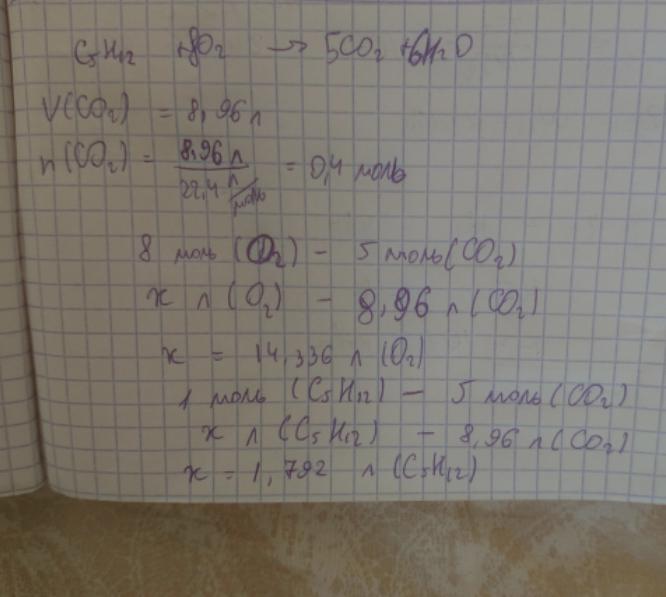 C₅H₁₂ + 8O₂ → 5CO₂ + 6H₂O
V(CO₂) = 8,96 л
n(CO₂) = 8,96 л / 22,4 л/моль = 0,4 моль
8 моль (O₂) – 5 моль (CO₂)
x л (O₂) – 8,96 л (CO₂)
x = 14,336 л (O₂)
1 моль (C₅H₁₂) – 5 моль (CO₂)
x л (C₅H₁₂) – 8,96 л (CO₂)
x = 1,792 л (C₅H₁₂)